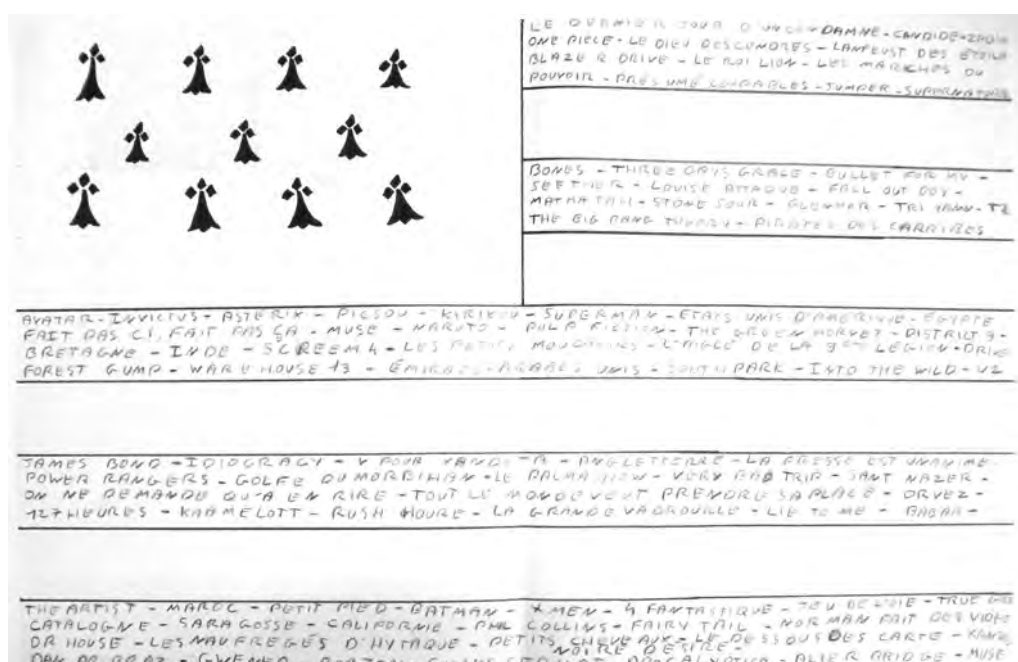 LE DERNIER JOUR D'UN CONDAMNE - CANDIDE -
ONE PIECE - LE DIEU DES CUNDRES - LANFEUST DES ETOILE
BLAZER DRIVE - LE ROI LION - LES MARCHES DU
POUVOIR - PRESUME COUPABLES - JUMPER - SUPERNATURE
BONES - THREE DAYS GRACE - BULLET FOR MY -
SEETHER - LOUISE ATTAQUE - FALL OUT BOY -
MATMATAH - STONE SOUR - GLENMOR - TRI YANN -
THE BIG BANG THEORY - PIRATES DES CARRIBES
AVATAR - INVICTUS - ASTERIX - PICSOU - KIRIKOU - SUPERMAN - ETATS UNIS D'AMERIQUE - EGYPTE
FAIT PAS CI, FAIT PAS ÇA - MUSE - NARUTO - PULP FICTION - THE GREEN HORNET - DISTRICT 9 -
BRETAGNE - INDE - SCREEM 4 - LES PETITS MOUCHOIRS - L'AIGLE DE LA 9eme LEGION - DRIV
FOREST GUMP - WAREHOUSE 13 - ÉMIRATS-ARABES UNIS - SOUTH PARK - INTO THE WILD - U2
JAMES BOND - IDIOCRACY - V POUR VENDETTA - ANGLETERRE - LA FRESSE EST UNANIME -
POWER RANGERS - GOLFE DU MORBIHAN - LE PALMASHOW - VERY BAD TRIP - SANT NAZER -
ON NE DEMANDE QU'A EN RIRE - TOUT LE MONDE VEUT PRENDRE SA PLACE - ORVEZ -
127 HEURES - KAAMELOTT - RUSH HOURE - LA GRANDE VADROUILLE - LIE TO ME - BABAR -
THE ARTIST - MAROC - PETIT PIED - BATMAN - X MEN - 4 FANTASTIQUE - JEU DE L'OIE - TRUE
CATALOGNE - SARAGOSSE - CALIFORNIE - PHIL COLLINS - FAIRY TAIL - NORMAN FAIT DES VIDEO
DR HOUSE - LES NAUFREGÉS D'HYTAQUE - PETITS CHEVEAUX - LE DESSOUS DES CARTE -
NOIRE DESIRE -
DAN AR BRAZ - GWENED - APOCALYPTICA - ALTER BRIDGE - MUSE